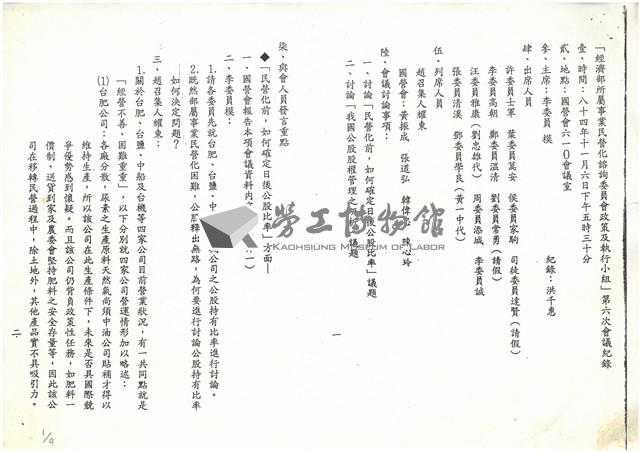 「經濟部所屬事業民營化諮詢委員會政策及執行小組」第六次會議紀錄
壹、時間：八十四年十一月六日下午五時三十分
貳、地點：國營會六一〇會議室
參、主席：李委員 模
紀錄：洪千惠
肆、出席人員
許委員士軍 葉委員萬安 侯委員家駒 司徒委員達賢（請假）
李委員高朝 鄭委員溫清 劉委員常勇（請假）
汪委員雅康（劉忠雄代） 周委員添城 李委員誠
張委員清溪 鄧委員學良（黃一中代）
伍、列席人員
趙召集人耀東
國營會：黃振成 張道弘 韓偉 陳心玲
陸、會議討論事項：
一、討論「民營化前，如何確定日後公股比率」議題
二、討論「我國公股股權管理之分析」議題
一
柒、與會人員發言重點
◆「民營化前，如何確定日後公股比率」方面—
一、國營會報告本項會議資料內
二、李委員模：
1.請各委員先就台肥、台鹽、中 公司之公股持有比率進行討論。
2.既然部屬事業民營化困難，公股釋出無路，為何要進行討論公股持有比率
如何決定問題？
三、趙召集人耀東：
1.關於台肥、台鹽、中船及台機等四家公司目前營業狀況，有一共同點就是
「經營不善、困難重重」，以下分別就四家公司營運情形加以略述：
(1)台肥公司：各廠分散，尿素之生產原料天然氣尚須中油公司貼補才得以
維持生產，所以該公司在此生產條件下，未來是否具國際競
爭優勢感到懷疑。而且該公司仍背負政策性任務，如肥料一
價制、送貨到家及農委會堅持肥料之安全存量等，因此該公
司在移轉民營過程中，除土地外，其他產品實不具吸引力。
二
1/9
勞工博物館
KAOHSIUNG MUSEUM OF LABOR